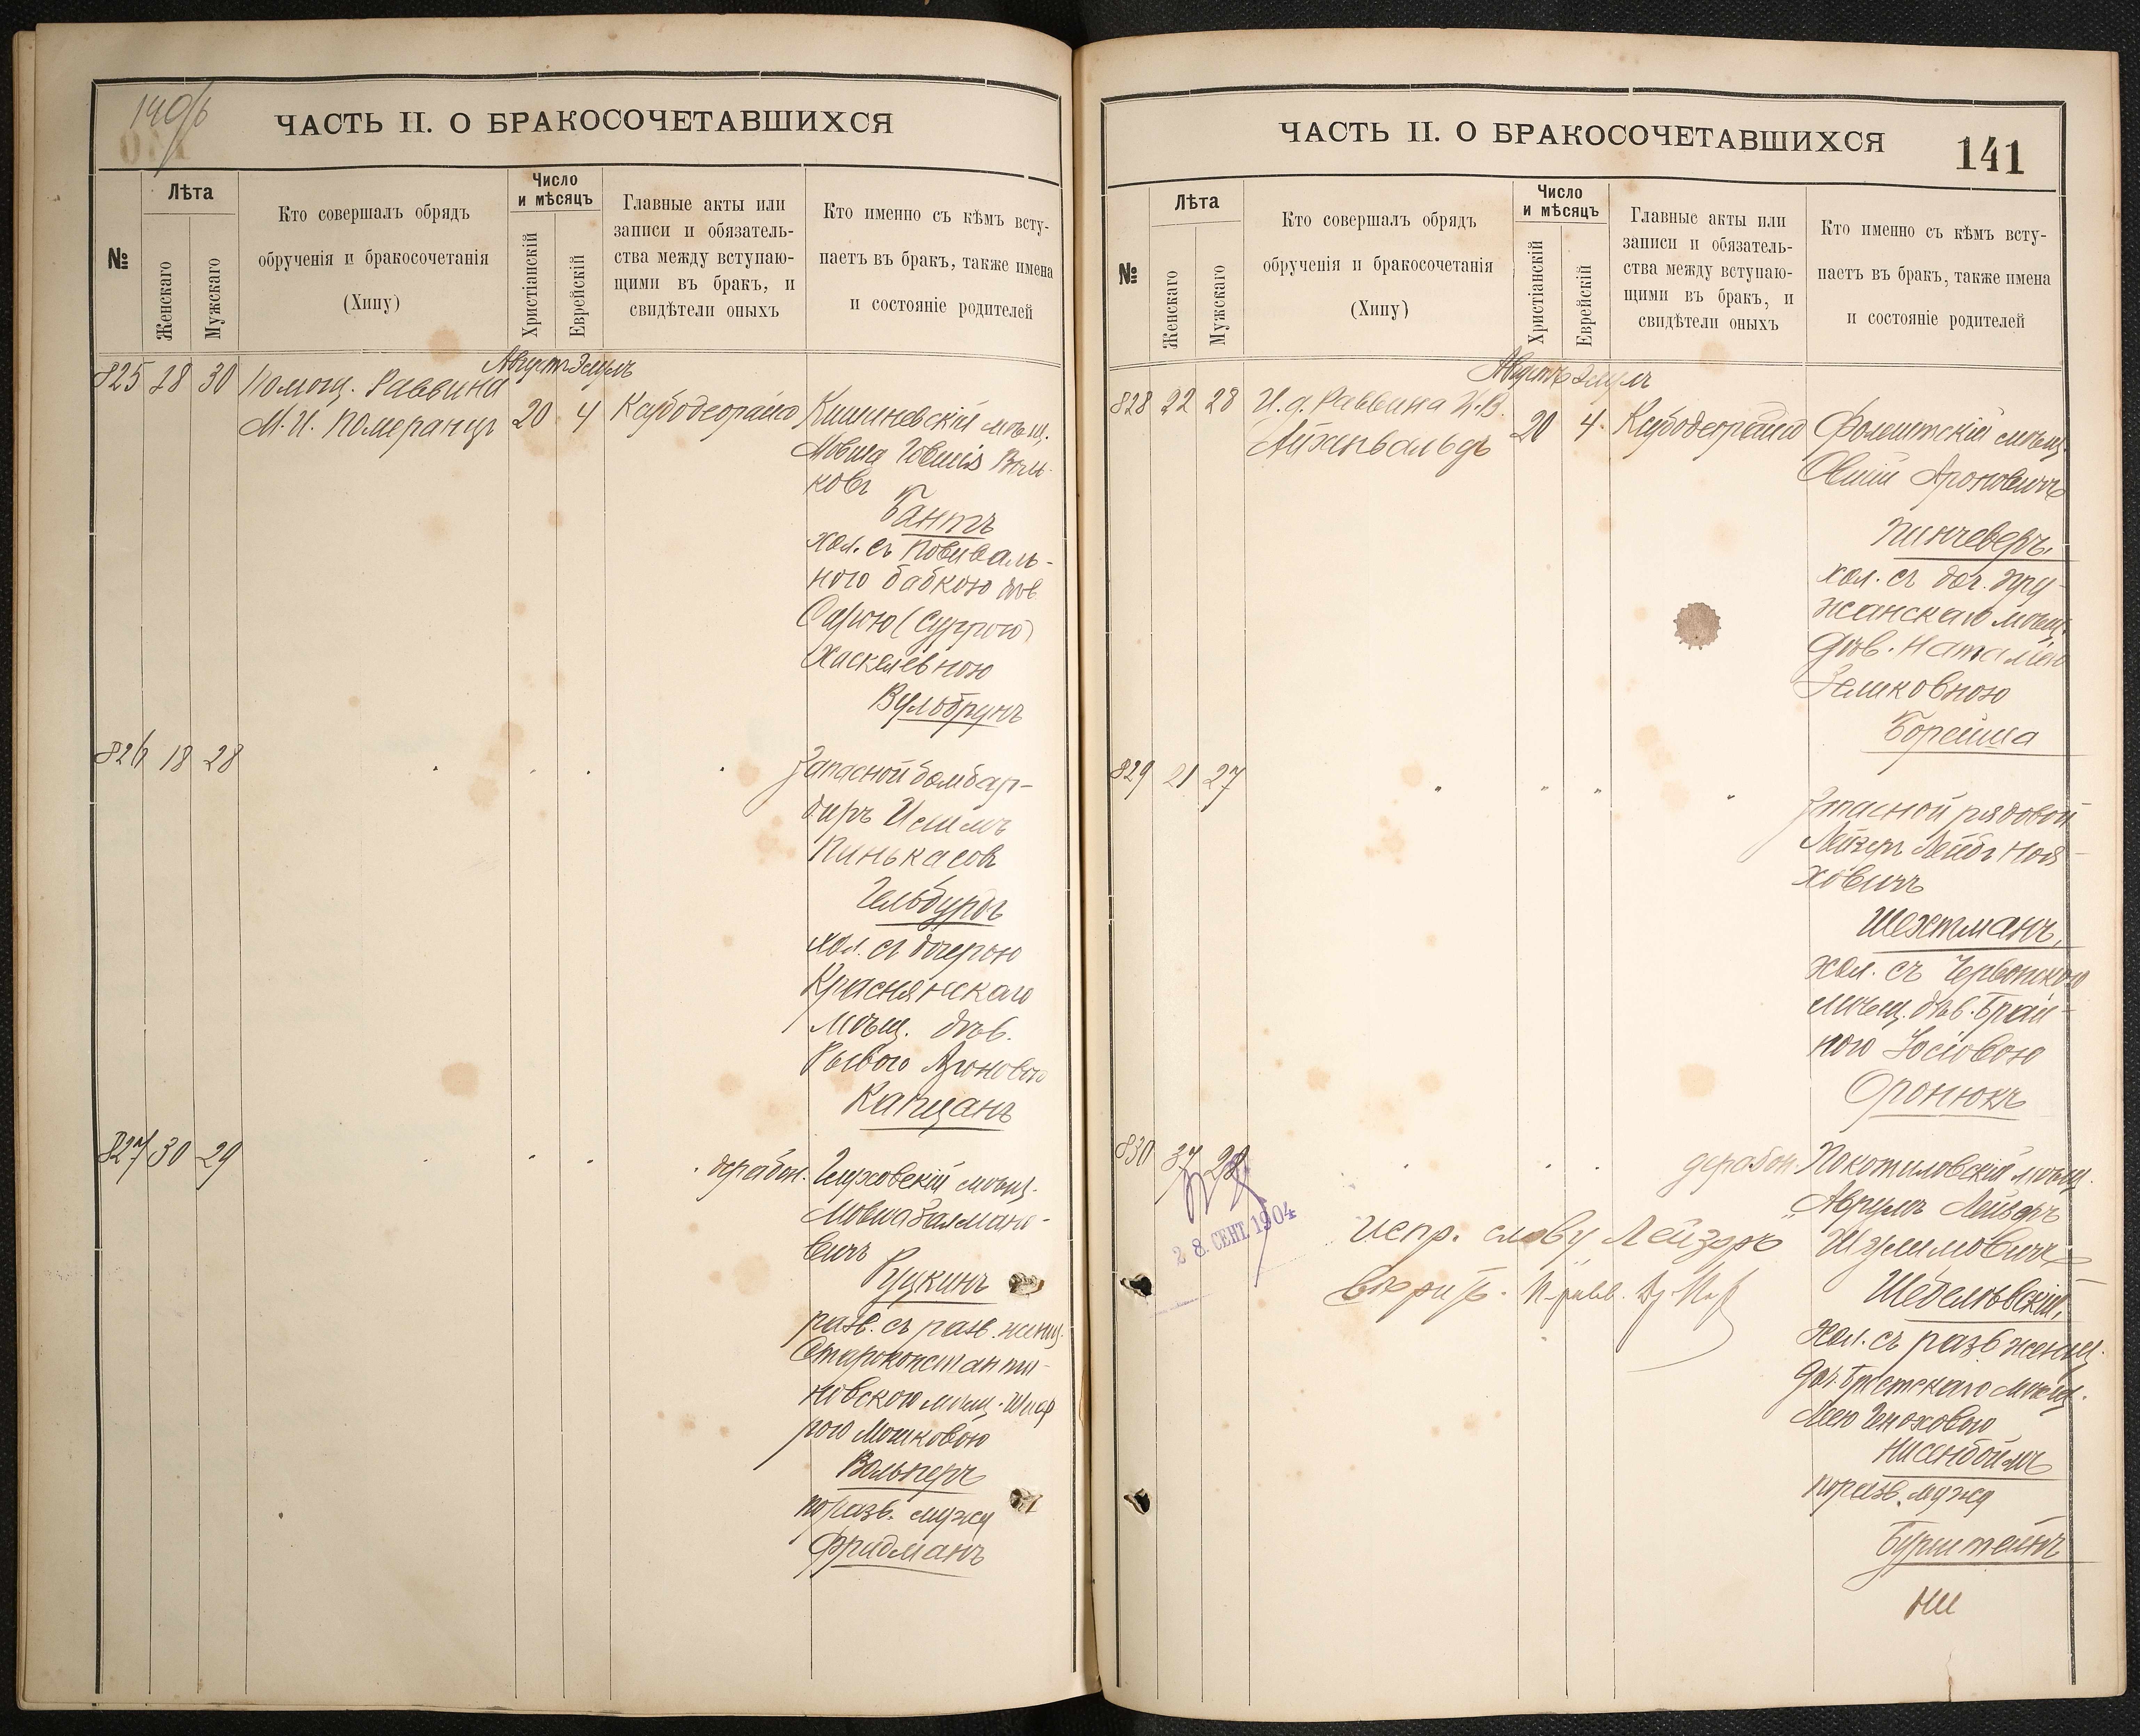 140/б
ЧАСТЬ II. О БРАКОСОЧЕТАВШИХСЯ
№
Лѣта
Женскаго
Мужскаго
Кто совершалъ обрядъ
обрученія и бракосочетанія
(Хипу)
Число
и мѣсяцъ
Христіанскій
Еврейскій
Главные акты или
записи и обязатель-
ства между вступаю-
щими въ бракъ, и
свидѣтели оныхъ
Кто именно съ кѣмъ всту-
паетъ въ бракъ, также имена
и состояніе родителей
Августъ Элулъ
825 28 30 Помощ. Раввина
М. И. Померанцъ 20 4 Кисубодеорайсо Кишиневскій мѣщ.
Мовша Іовшіе Воль-
ковъ
Гантъ
хол. съ повиваль-
ною бабкою дѣв.
Сарою (Суррою)
Хаскелевною
Вульбрунъ
826 18 28
Запасной бомбар-
диръ
Пинькасовъ
Гельбурдъ
хол. съ дочерью
Краснянскаго
мѣщ. дѣв.
Рывою Ароновою
Капцанъ
827 30 29 дерабон. Глуховскій мѣщ.
Мовша Залмано-
вичъ
Рцукинъ
разв. съ разв. женщ.
Староконстанти-
новскою мѣщ. Шиф
рою Мошковою
Вольперъ
по разв. мужу
Фридманъ
ЧАСТЬ II. О БРАКОСОЧЕТАВШИХСЯ
141
№
Лѣта
Женскаго
Мужскаго
Кто совершалъ обрядъ
обрученія и бракосочетанія
(Хипу)
Число
и мѣсяцъ
Христіанскій
Еврейскій
Главные акты или
записи и обязатель-
ства между вступаю-
щими въ бракъ, и
свидѣтели оныхъ
Кто именно съ кѣмъ всту-
паетъ въ бракъ, также имена
и состояніе родителей
Августъ Элулъ
828 22 28 И. д. Раввина Ю. В.
Айхенвальдъ 20 4 Кисубодеорайсо Фолештскій мѣщ.
Овшій Ароновичъ
Пинчеверъ,
хол. съ доч. Пру-
жанскаго мѣщ.
дѣв. Наталіею
Зеликовною
Борейша
829 21 27
Запасной рядовой
Лейзеръ Лейбъ Ной-
ховичъ
Шехтманъ,
хол. съ
мѣщ. дѣв. Брай-
ною Іосіовою
Оронюкъ
830 37 28 дерабон. Покотиловскій мѣщ.
Аврумъ Лейзеръ
Шулимовичъ
Шебелевскій,
хол. съ разв. женщ.
доч. Брестскаго мѣщ.
Леею Геноховою
Нисенбоймъ
по разв. мужу
Бурштейнъ
28 СЕНТ. 1904
испр. слову „Лейзеръ"
вѣрить.